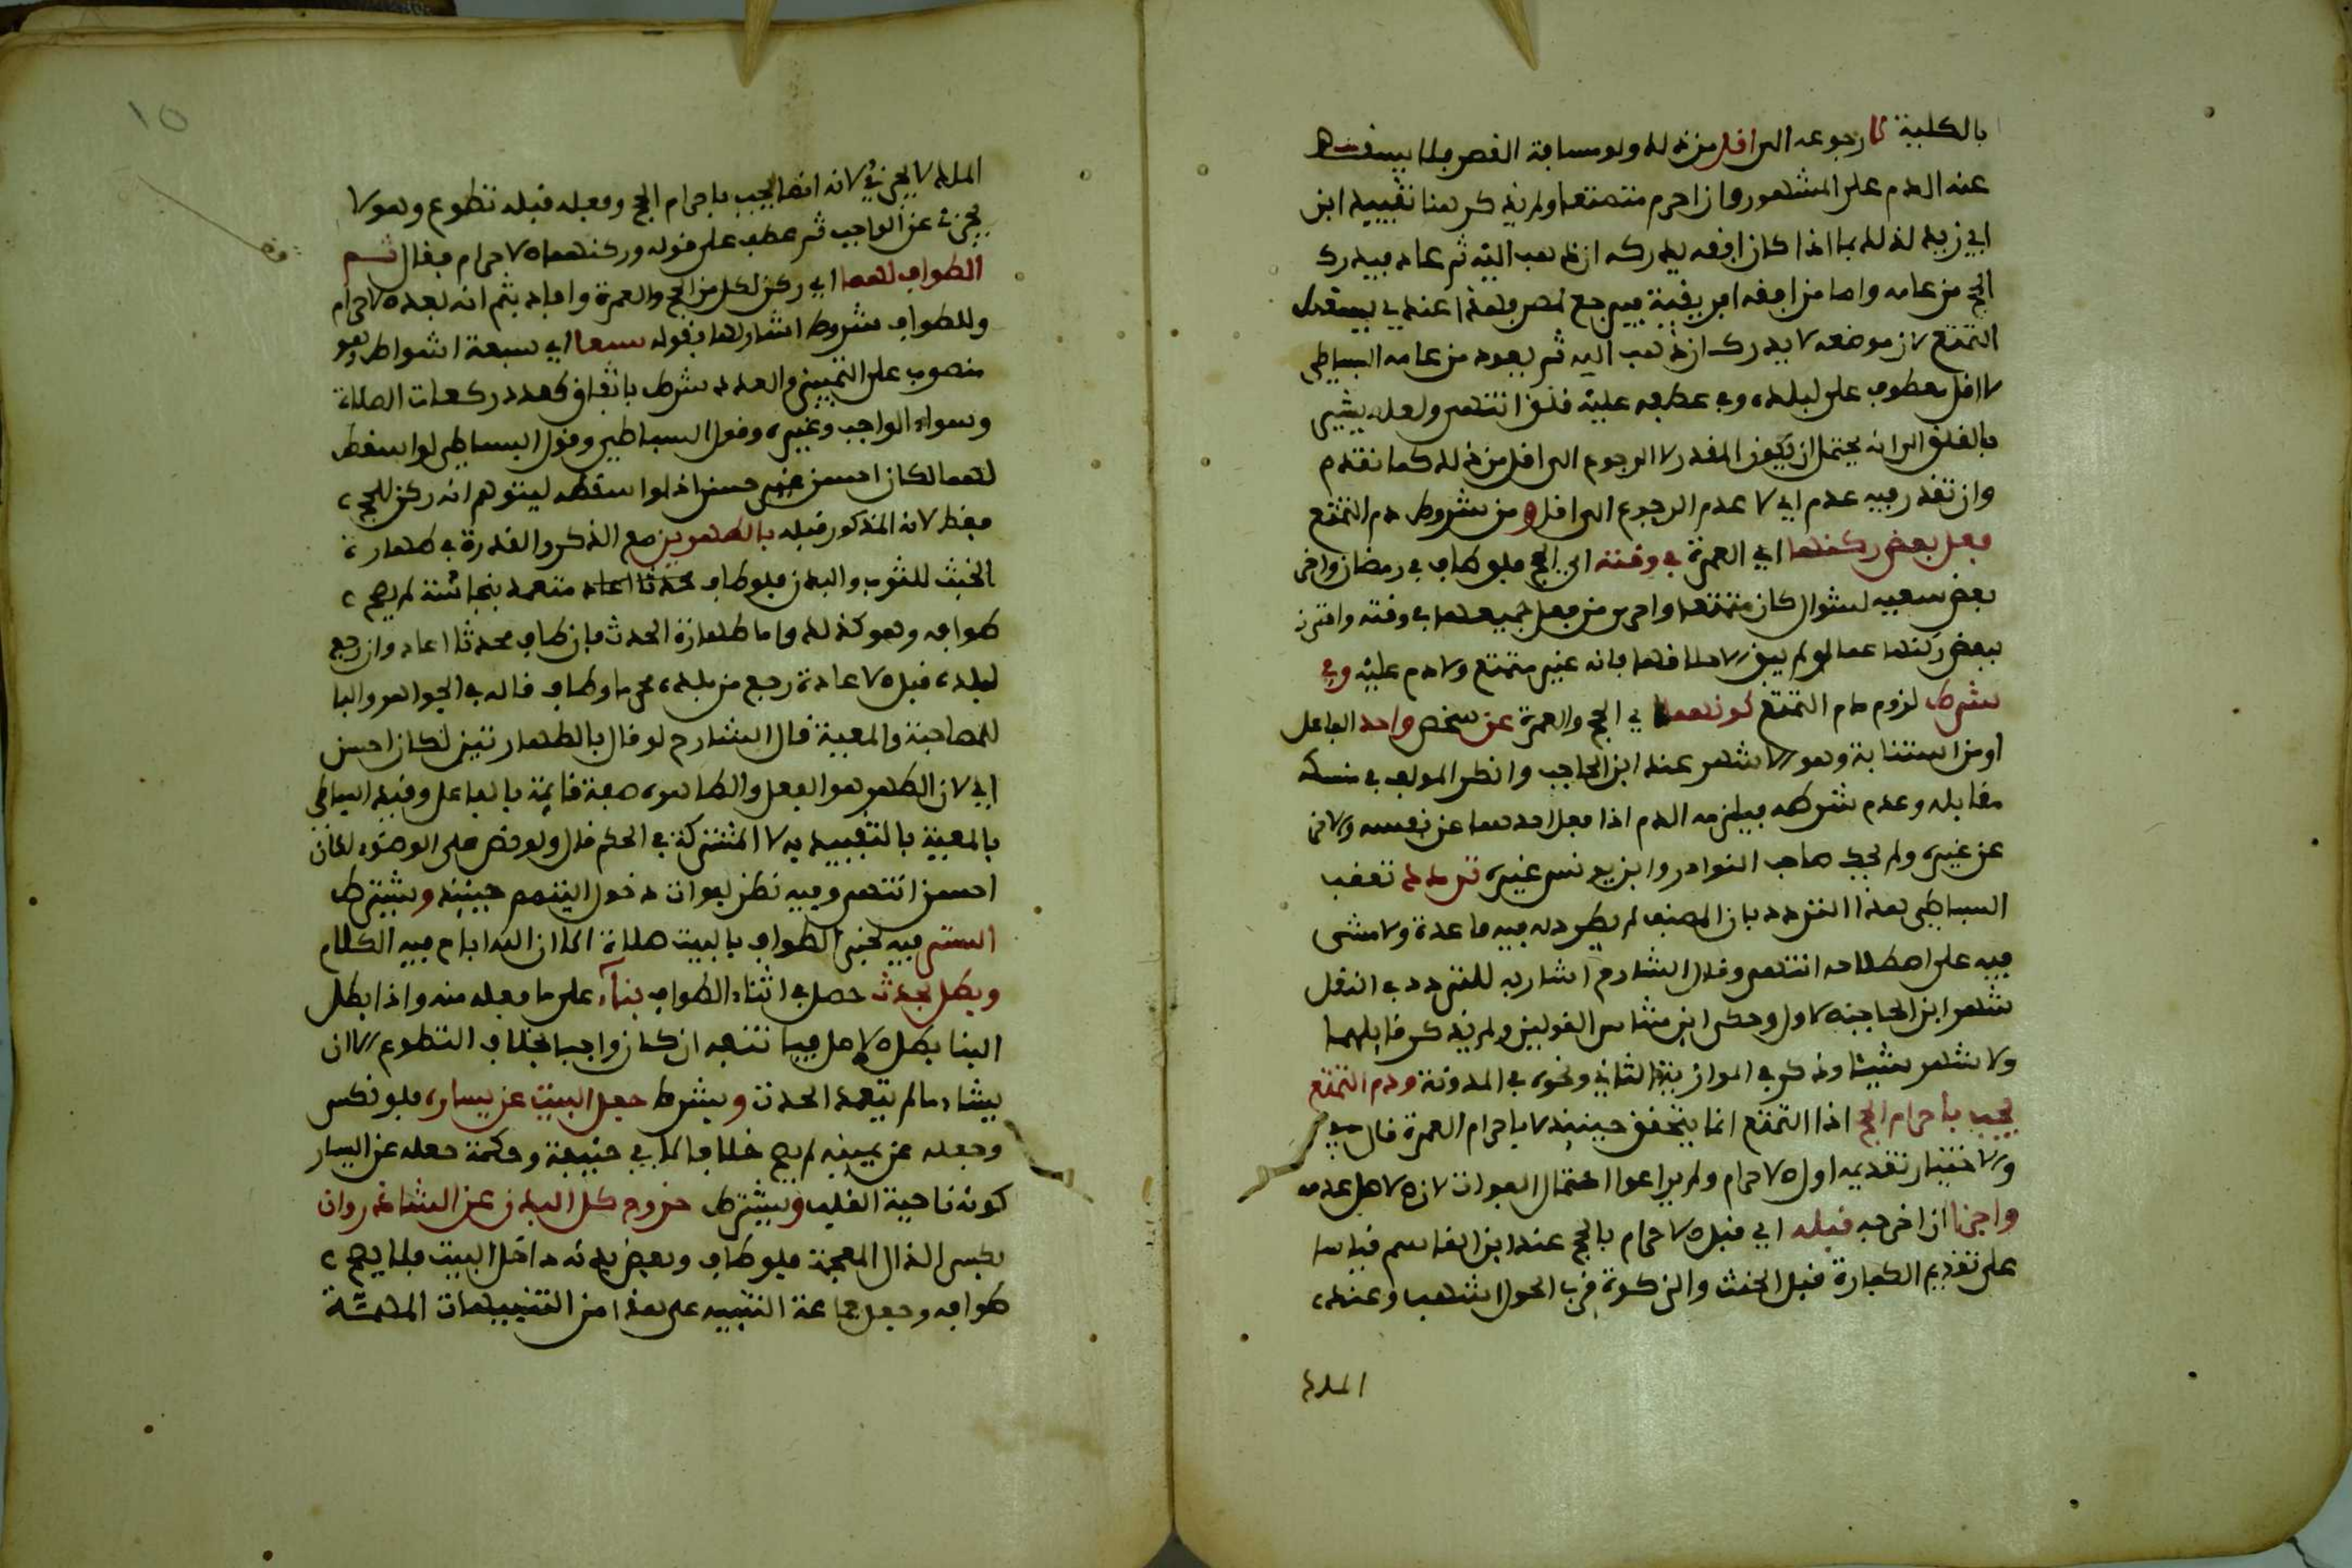 بالكلية لا رجوعه الى اقل من ذلك ولو مسافة القصر فلا يسقط
عنه الدم على المشهور وان احرم متمتعا ولم يذكر هنا تقييد ابن
ابي زيد لذلك بما اذا كان افقه يدركه ان ذهب اليه ثم عاد فيدرك
الحج من عامه واما من افقه افريقية فيرجع لمصر فهذا عندي يسقط
التمتع لان موضعه لا يدرك ان ذهب اليه ثم يعود من عامه البساطي
لا اقل معطوف على لبلده وفي عطفه عليه قلق انتهى ولعله يشير
بالقلق الى انه يحتمل ان يكون المقدر لا الرجوع الى اقل من ذلك كما تقدم
وان تقدر فيه عدم اي لا عدم الرجوع الى اقل و من شروط دم التمتع
فعل بعض ركنها اي العمرة في وقته اي الحج فلو طاف في رمضان واخر
بعض سعيه لشوال كان متمتعا واحرى من فعل جميعها في وقته واحترز
ببعض ركنها عما لو لم يبق الا حلاقها فانه غير متمتع ولا دم عليه وفي
شرط لزوم دم التمتع كونهما اي الحج والعمرة عن شخص واحد الفاعل
او من استنابه وهو الاشهر عند ابن الحاجب وانظر المولف في منسكه
مقابله وعدم شرطه فيلزمه الدم اذا فعل احدهما عن نفسه والاخر
عن غيره ولم يحك صاحب النوادر وابن يونس غيره تردد تعقب
البساطي هذا التردد بان المصنف لم يطرد له فيه قاعدة ولا مشى
فيه على اصطلاحه انتهى وقال الشارح اشار به للتردد في النقل
شهر ابن الحاجب الاول وحكى ابن شاس القولين ولم يذكر قايلهما
ولا شهر شيئا وذكر في الموازية الثاني ونحوه في المدونة ودم التمتع
يجب باحرام الحج اذا التمتع انما يتحقق حينيذ لا باحرام العمرة قال
والاختيار تقديمه اول الاحرام ولم يراعوا احتمال الفوات لان الاصل عدمه
واجزا ان اخرجه قبله اي قبل الاحرام بالحج عند ابن القاسم قياسا
على تقديم الكفارة قبل الحنث والزكوة قرب الحول اشهب وعنده
الملك
١٥
الملك لا يجزئ لانه انما يجب باحرام الحج وفعله قبله تطوع وهو لا
يجزئ عن الواجب ثم عطف على قوله وركنهما الاحرام فقال ثم
الطواف لهما اي ركن لكل من الحج والعمرة وافاد بثم انه بعد الاحرام
وللطواف شروط اشار لها بقوله سبعا اي سبعة اشواط وهو
منصوب على التمييز والعدد شرط باتفاق كعدد ركعات الصلاة
وسواء الواجب وغيره وقول البساطي لو اسقط
لهما لكان احسن غير حسن اذ لو اسقطه ليتوهم انه ركن للحج
فقط لانه المذكور قبله بالطهرين مع الذكر والقدرة في طهارة
الخبث للثوب والبدن فلو طاف متعمد بنجاسته لم يصح
طوافه وهو كذلك واما طهارة الحدث فان طاف محدثا اعاد وان رجع
لبلده قبل الاعادة رجع من بلده محرما وطاف قاله في الجواهر والبا
للمصاحبة والمعية قال الشارح لو قال بالطهارتين لكان احسن
اي لان الطهر هو الفعل والطاهره صفة قايمة بالفاعل وقيد البساطي
بالمعية بالتقييد به لا المشتركة في الحكم قال ولو قصر على الوضوء لكان
احسن انتهى وفيه نظر لفوات دخول التيمم حينيذ ويشترط
الستر فيه لخبر الطواف بالبيت صلاة الا ان الله اباح فيه الكلام
وبطل بحدث حصل في اثناء الطواف بناء على ما فعله منه واذا بطل
البنا بطل الاصل فيبتدئه ان كان واجبا بخلاف التطوع الا ان
يشاء ما لم يتعمد الحدث ويشرط جعل البيت عن يساره فلو نكس
وجعله عن يمينه لم يصح خلافا لابي حنيفة وحكمة جعله عن اليسار
كونه ناحية القلب ويشترط خروج كل البدن عن الشاذروان
بكسر الذال المعجمة فلو طاف وبعض بدنه داخل البيت فلا يصح
طوافه وجعل جماعة التنبيه على هذا من التنبيهات المهمة